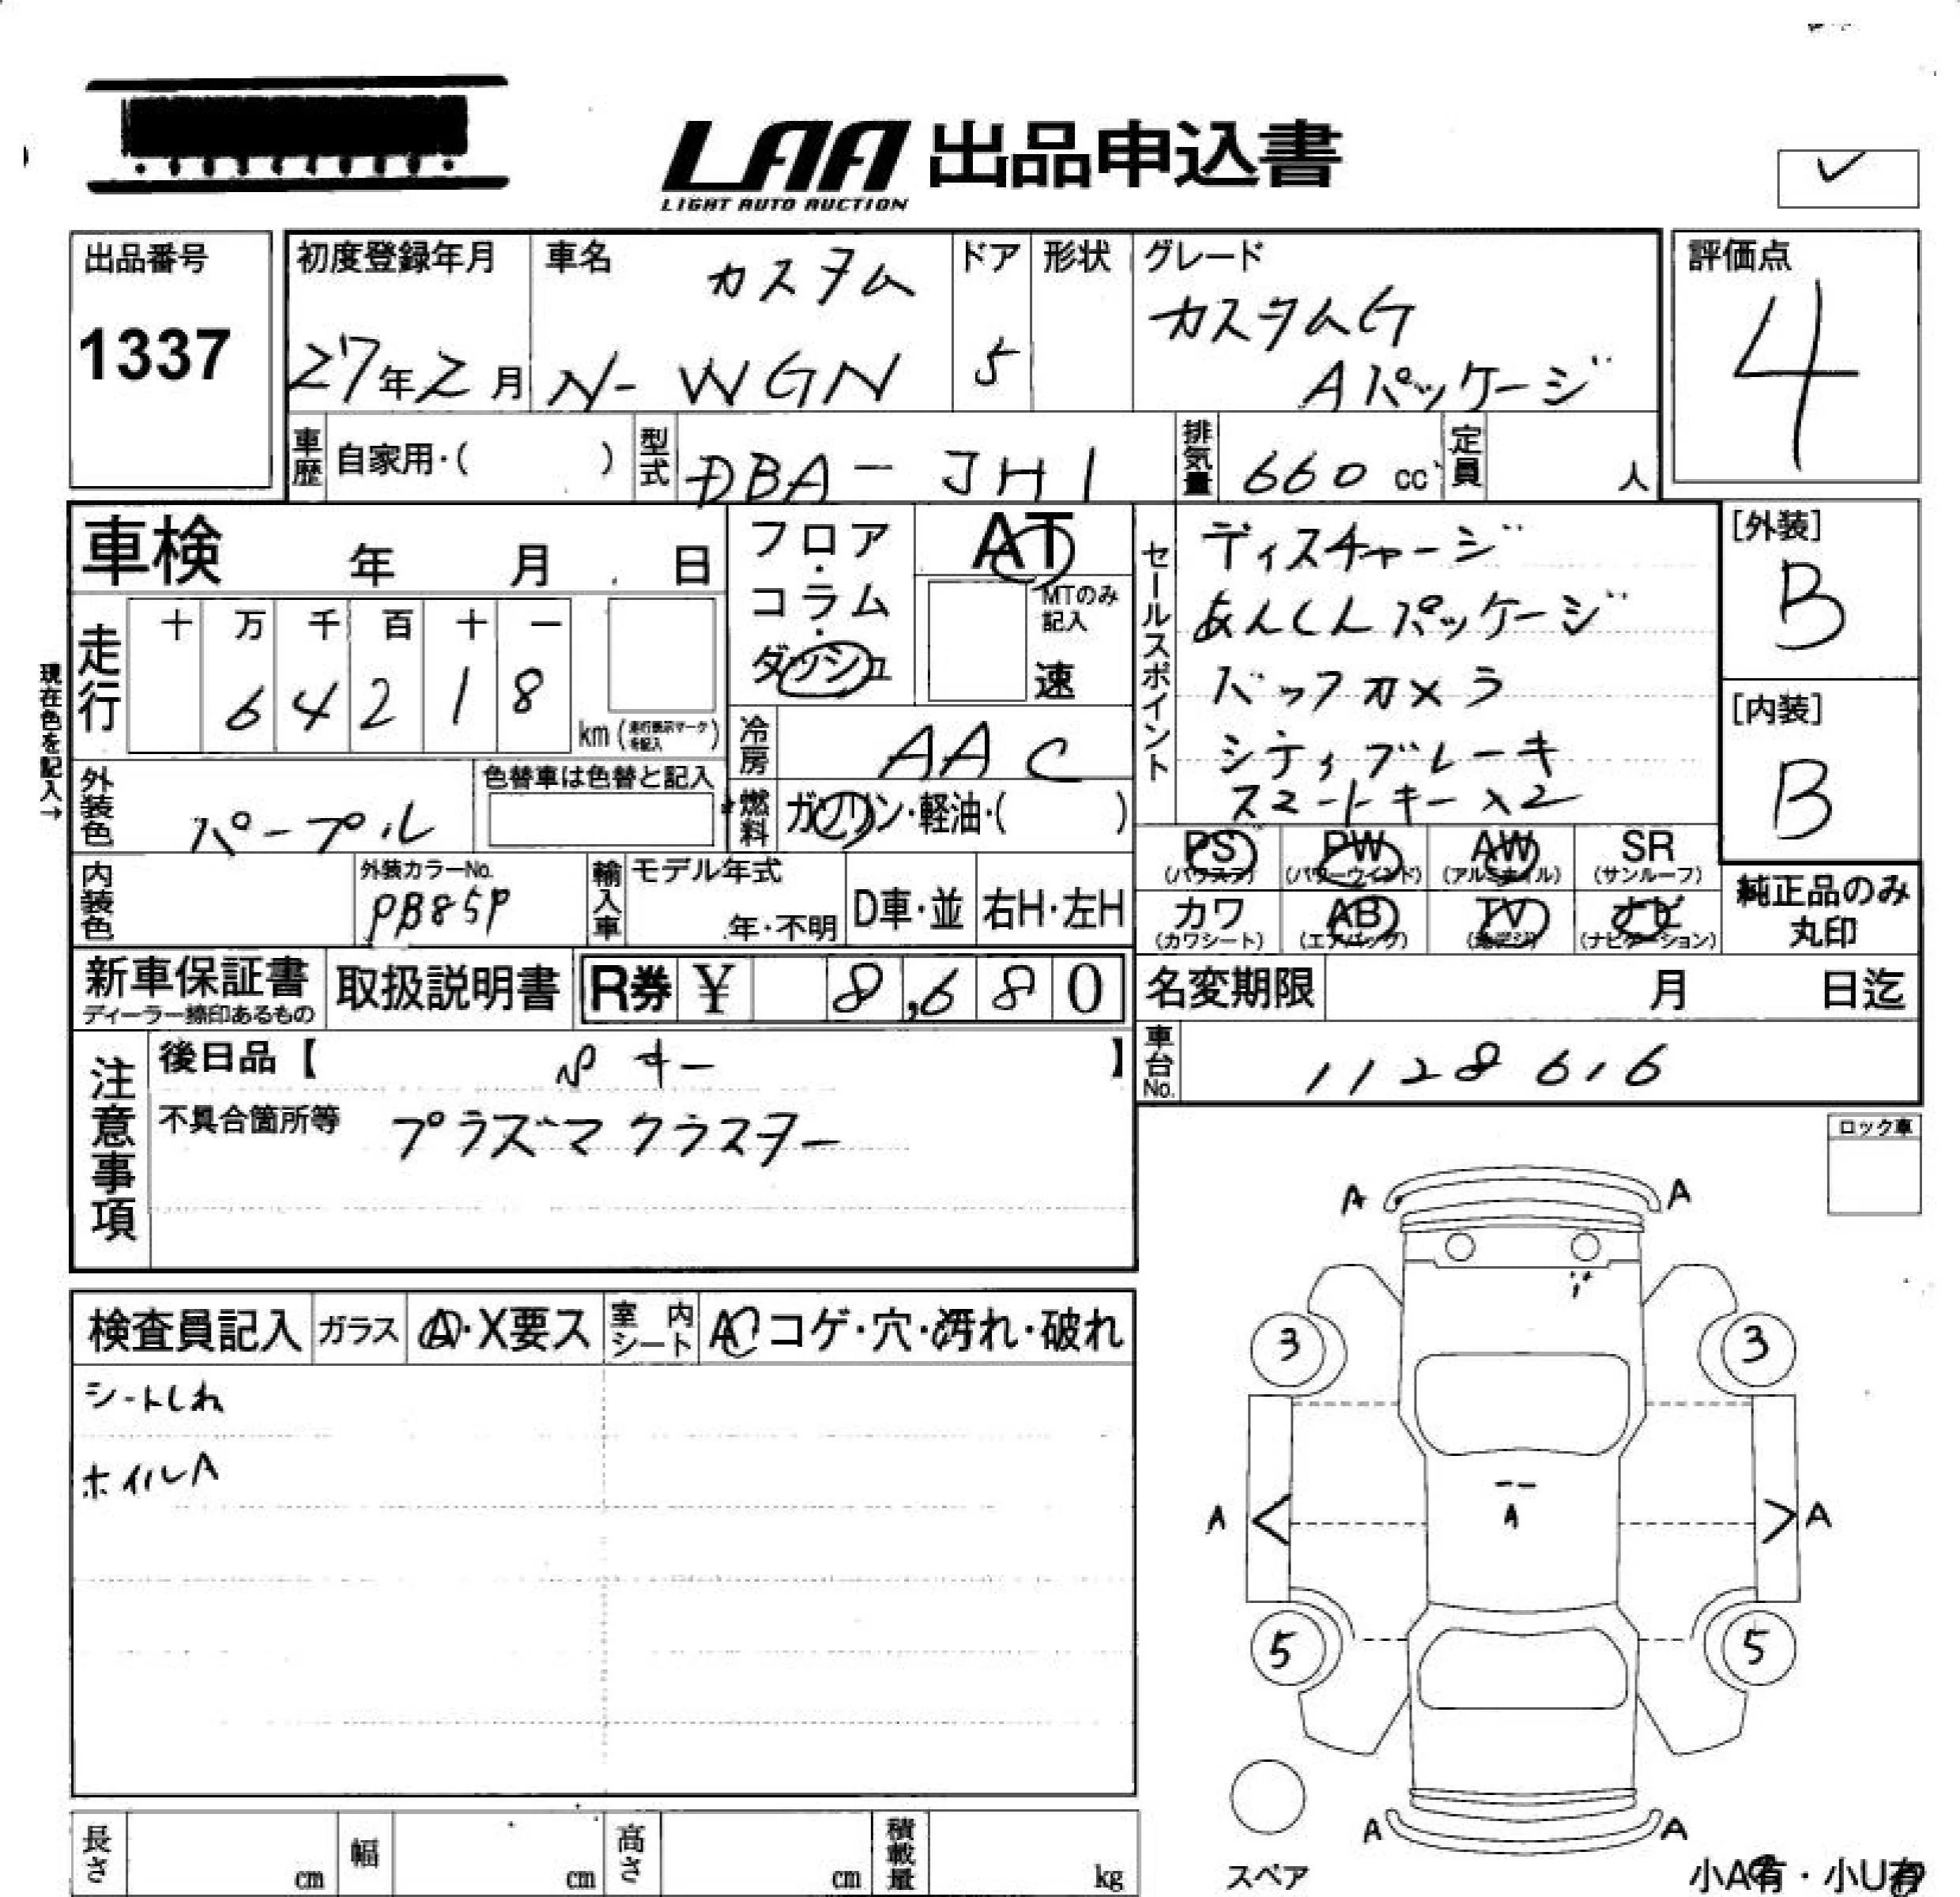 LAA 出品申込書
LIGHT AUTO AUCTION
出品番号
1337
初度登録年月
27年2月
車名
カスタム
N-WGN
ドア
5
形状
グレード
カスタムG
Aパッケージ
評価点
4
車歴 自家用・( )
型式 DBA-JH1
排気量 660 cc
定員 人
車検 年 月 日
フロア・コラム・ダッシュ
AT
MTのみ記入
速
セールスポイント
ディスチャージ
あんしんパッケージ
バックカメラ
シティブレーキ
スマートキー×2
[外装]
B
[内装]
B
現在色を記入→
走行
十 万 千 百 十 一
6 4 2 1 8
km (走行表示マークを記入)
冷房 AAC
外装色 パープル
色替車は色替と記入
燃料 ガソリン・軽油・( )
内装色
外装カラーNo.
PB85P
輸入車
モデル年式
年・不明
D車・並
右H・左H
PS (パワステ)
PW (パワーウィンド)
AW (アルミホイル)
SR (サンルーフ)
カワ (カワシート)
AB (エアバッグ)
TV (地デジ)
ナビ (ナビゲーション)
純正品のみ
丸印
新車保証書
ディーラー捺印あるもの
取扱説明書
R券 ¥ 8,680
名変期限 月 日迄
車台No. 1128616
注意事項
後日品【 キー 】
不具合箇所等 プラズマクラスター
ロック車
検査員記入
ガラス Ⓐ・X要ス
室内シート A コゲ・穴・汚れ・破れ
シートしわ
ホイルA
A A
3 3
A A A
5 5
A A
スペア
小A有・小U有
長さ cm
幅 cm
高さ cm
積載量 kg